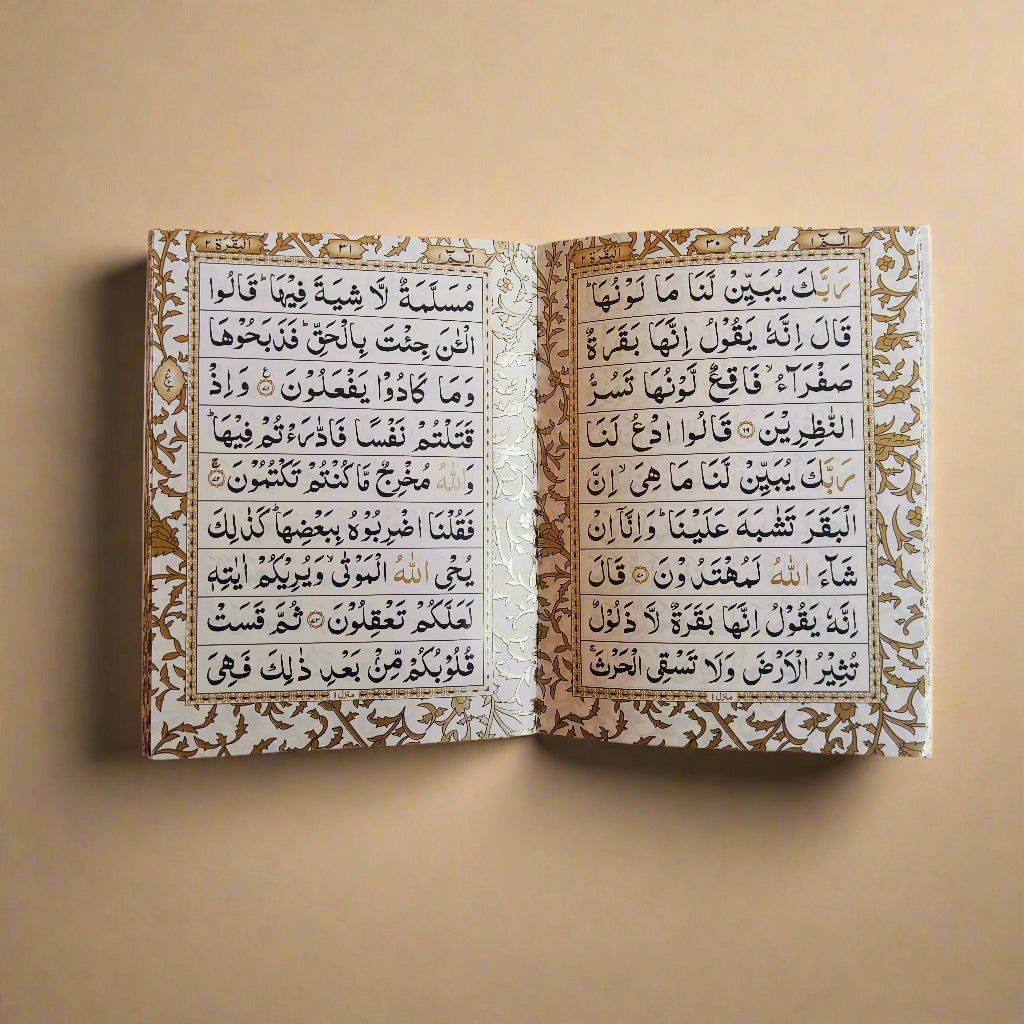 الٓمّٓ ١
٣٠
البقرة ٢
رَبَّكَ يُبَيِّنْ لَّنَا مَا لَوْنُهَا ؕ
قَالَ اِنَّهٗ يَقُوْلُ اِنَّهَا بَقَرَةٌ
صَفْرَآءُ ۙ فَاقِعٌ لَّوْنُهَا تَسُرُّ
النّٰظِرِيْنَ ۟۶۹ قَالُوا ادْعُ لَنَا
رَبَّكَ يُبَيِّنْ لَّنَا مَا هِىَ ۙ اِنَّ
الْبَقَرَ تَشٰبَهَ عَلَيْنَا ؕ وَاِنَّاۤ اِنْ
شَآءَ اللّٰهُ لَمُهْتَدُوْنَ ۟۷۰ قَالَ
اِنَّهٗ يَقُوْلُ اِنَّهَا بَقَرَةٌ لَّا ذَلُوْلٌ
تُثِيْرُ الْاَرْضَ وَلَا تَسْقِى الْحَرْثَ ۚ
منزل ١
الٓمّٓ ١
٣١
البقرة ٢
مُسَلَّمَةٌ لَّا شِيَةَ فِيْهَا ؕ قَالُوا
الْـٰٔنَ جِئْتَ بِالْحَقِّ ؕ فَذَبَحُوْهَا
وَمَا كَادُوْا يَفْعَلُوْنَ ۟۷۱ وَاِذْ
قَتَلْتُمْ نَفْسًا فَادّٰرَءْتُمْ فِيْهَا ؕ
وَاللّٰهُ مُخْرِجٌ مَّا كُنْتُمْ تَكْتُمُوْنَ ۟۷۲
فَقُلْنَا اضْرِبُوْهُ بِبَعْضِهَا ؕ كَذٰلِكَ
يُحْىِ اللّٰهُ الْمَوْتٰى ۙ وَيُرِيْكُمْ اٰيٰتِهٖ
لَعَلَّكُمْ تَعْقِلُوْنَ ۟۷۳ ثُمَّ قَسَتْ
قُلُوْبُكُمْ مِّنْۢ بَعْدِ ذٰلِكَ فَهِىَ
منزل ١